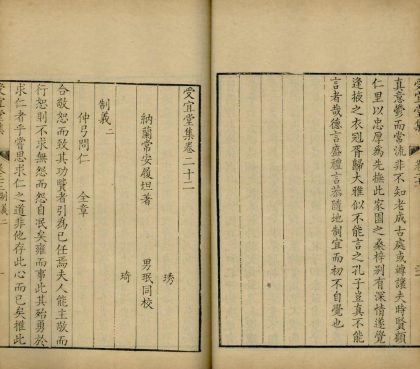 真意鬱而當流非不知老成古處或讓夫時賢顧
仁里以忠厚為先撫此家園之桑梓別有深情遂覺
逢掖之衣冠胥歸大雅似不能言之孔子豈真不能
言者哉德言盛禮言恭隨地制宜而初不自覺也
受宜堂集卷二十二
琇
納蘭常安履坦著 男珉同校
琦
制義二
仲弓問仁 全章
合敬恕而致其功賢者引為己任焉夫人能主敬而
行恕則不求無怨而怨自泯矣雍而事此其殆勇於
求仁者乎嘗思求仁之道非他存此心而已矣推此
受宜堂集 制義二